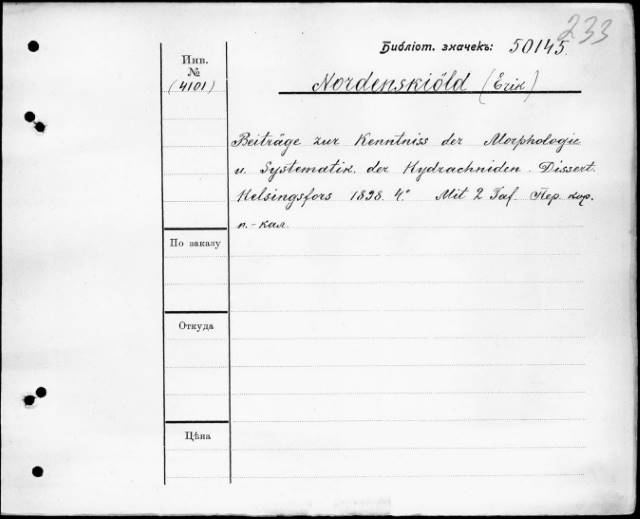 233
Библіот. значекъ: 50145.
Инв.
№
(4101)
Nordenskiöld (Erik)
Beiträge zur Kenntniss der Morphologie
u. Systematik. der Hydrachniden. Dissert.
Helsingsfors 1898. 4.° Mit 2 Taf. Пер. кор.
п.-кал.
По заказу
Откуда
Цѣна